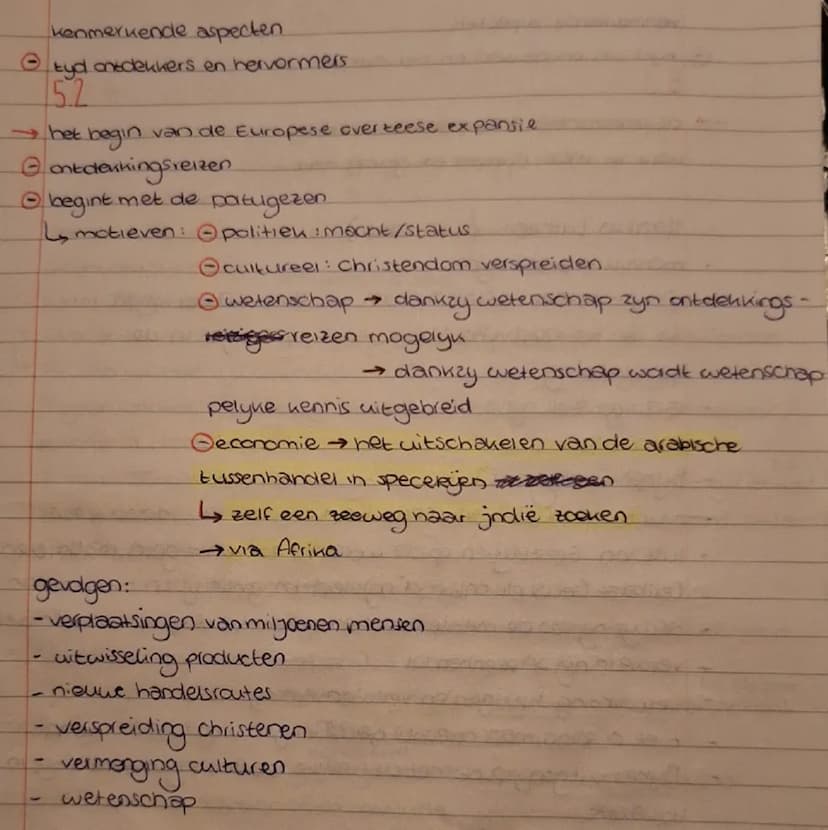 kenmerkende aspecten
⊖ tyd ontdekkers en hervormers
5.2
→ het begin van de Europese overzeese expansie
⊖ ontdekkingsreizen
⊖ begint met de patugezen
↳ motieven: ⊖ politiek: macht/status
⊖ cultureel: Christendom verspreiden
⊖ wetenschap → dankzy wetenschap zyn ontdekkings-
reizen mogelyk
→ dankzy wetenschap wadt wetenschap
pelyke kennis uitgebreid
⊖ economie → het uitschakelen van de arabische
tussenhandel in specerijen
↳ zelf een zeeweg naar jndië zoeken
→ via Afrika
gevolgen:
- verplaatsingen van miljoenen mensen
- uitwisseling producten
- nieuwe handelsroutes
- verspreiding christenen
- vermenging culturen
- wetenschap